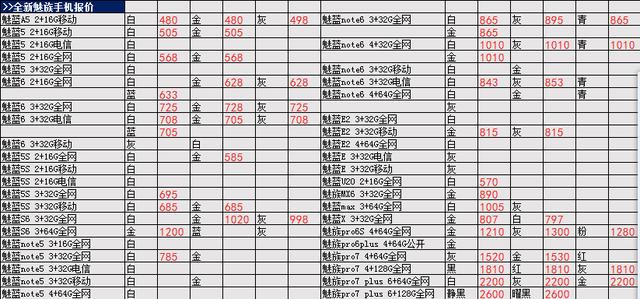 >>全新魅族手机报价
魅蓝A5 2+16G移动 白 480 金 480 灰 498 魅蓝note6 3+32G全网 白 865 灰 895 青 865
魅蓝5 2+16G移动 白 505 金 505 金 865
魅蓝5 2+16G电信 白 魅蓝note6 4+32G全网 白 1010 灰 1010 青 1010
魅蓝5 2+16G全网 白 568 金 568 金 1010
魅蓝5 3+32G全网 白 魅蓝note6 3+32G移动 白 金
魅蓝6 2+16G全网 白 金 628 灰 628 魅蓝note6 3+32G电信 白 843 灰 853 青
蓝 633 魅蓝note6 4+64G全网 白 金 青
魅蓝6 3+32G全网 白 725 金 728 灰 725 灰
魅蓝6 2+16G移动 白 708 金 705 灰 708 魅蓝E2 3+32G全网 金
蓝 705 魅蓝E2 3+32G移动 金 815 灰 815
魅蓝6 3+32G移动 灰 白 魅蓝E2 4+64G全网 白
魅蓝5S 2+16G全网 白 金 585 魅蓝E 3+32G电信 灰
魅蓝5S 2+16G移动 白 魅蓝E 3+32G移动 灰
魅蓝5S 2+16G电信 白 魅蓝U20 2+16G全网 白 570
魅蓝5S 3+32G全网 白 695 魅族MX6 3+32G全网 金 890
魅蓝5S 3+32G移动 白 685 金 685 魅蓝max 3+64G全网 白 1005 灰
魅蓝S6 3+32G全网 白 金 1020 灰 998 魅蓝X 3+32G全网 金 807 白 797
魅蓝S6 3+64G全网 金 1200 蓝 灰 魅族pro6S 4+64G全网 金 1210 灰 1300 粉 1280
魅蓝note5 3+16G全网 白 魅族pro6plus 4+64G公开 金
魅蓝note5 3+32G全网 白 785 金 魅族pro7 4+64G全网 灰 1520 金 1530 红
魅蓝note5 3+32G电信 白 魅族pro7 4+128G全网 黑 1810 红 1810 灰 1810
魅蓝note5 3+32G移动 白 金 魅族pro7 plus 6+64G全网 白 2200 灰 2200 金 2200
魅蓝note5 4+64G全网 白 魅族pro7 plus 6+128G全网 静黑 2600 曜黑 2600